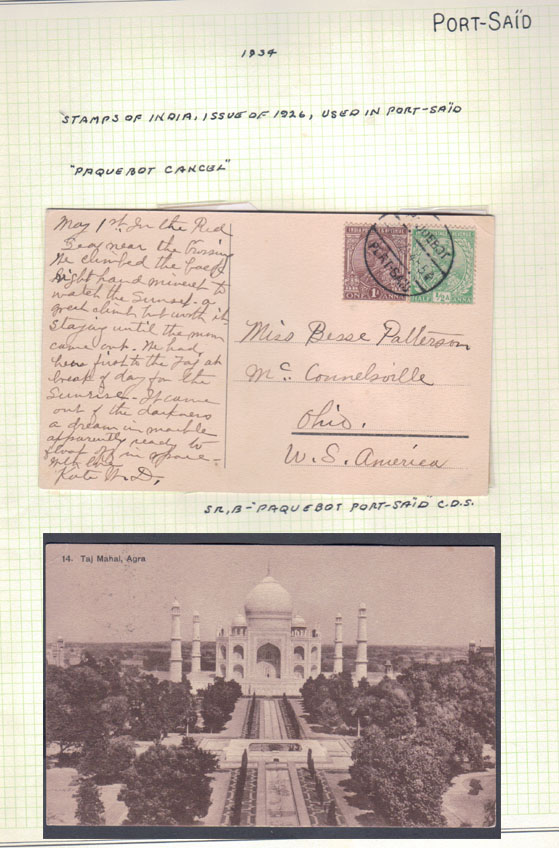 PORT-SAÏD
1934
STAMPS OF INDIA, ISSUE OF 1926, USED IN PORT-SAÏD
"PAQUEBOT CANCEL"
May 1st. In the Red
Sea, near the
We climbed the
right hand minaret to
watch the Sunset - a
great climb but worth it
staying until the moon
came out. We had
been first to the Taj at
break of day for the
Sunrise - It came
out of the darkness
a dream in marble
apparently ready to
float off in space -
with love
Kate W. D.
ONE 1A ANNA
HALF ½A ANNA
PORT-SAID
Miss Besse Patterson
Mc Connelsville
Ohio.
U. S. America
SR, B- "PAQUEBOT PORT-SAÏD" C.D.S.
14. Taj Mahal, Agra